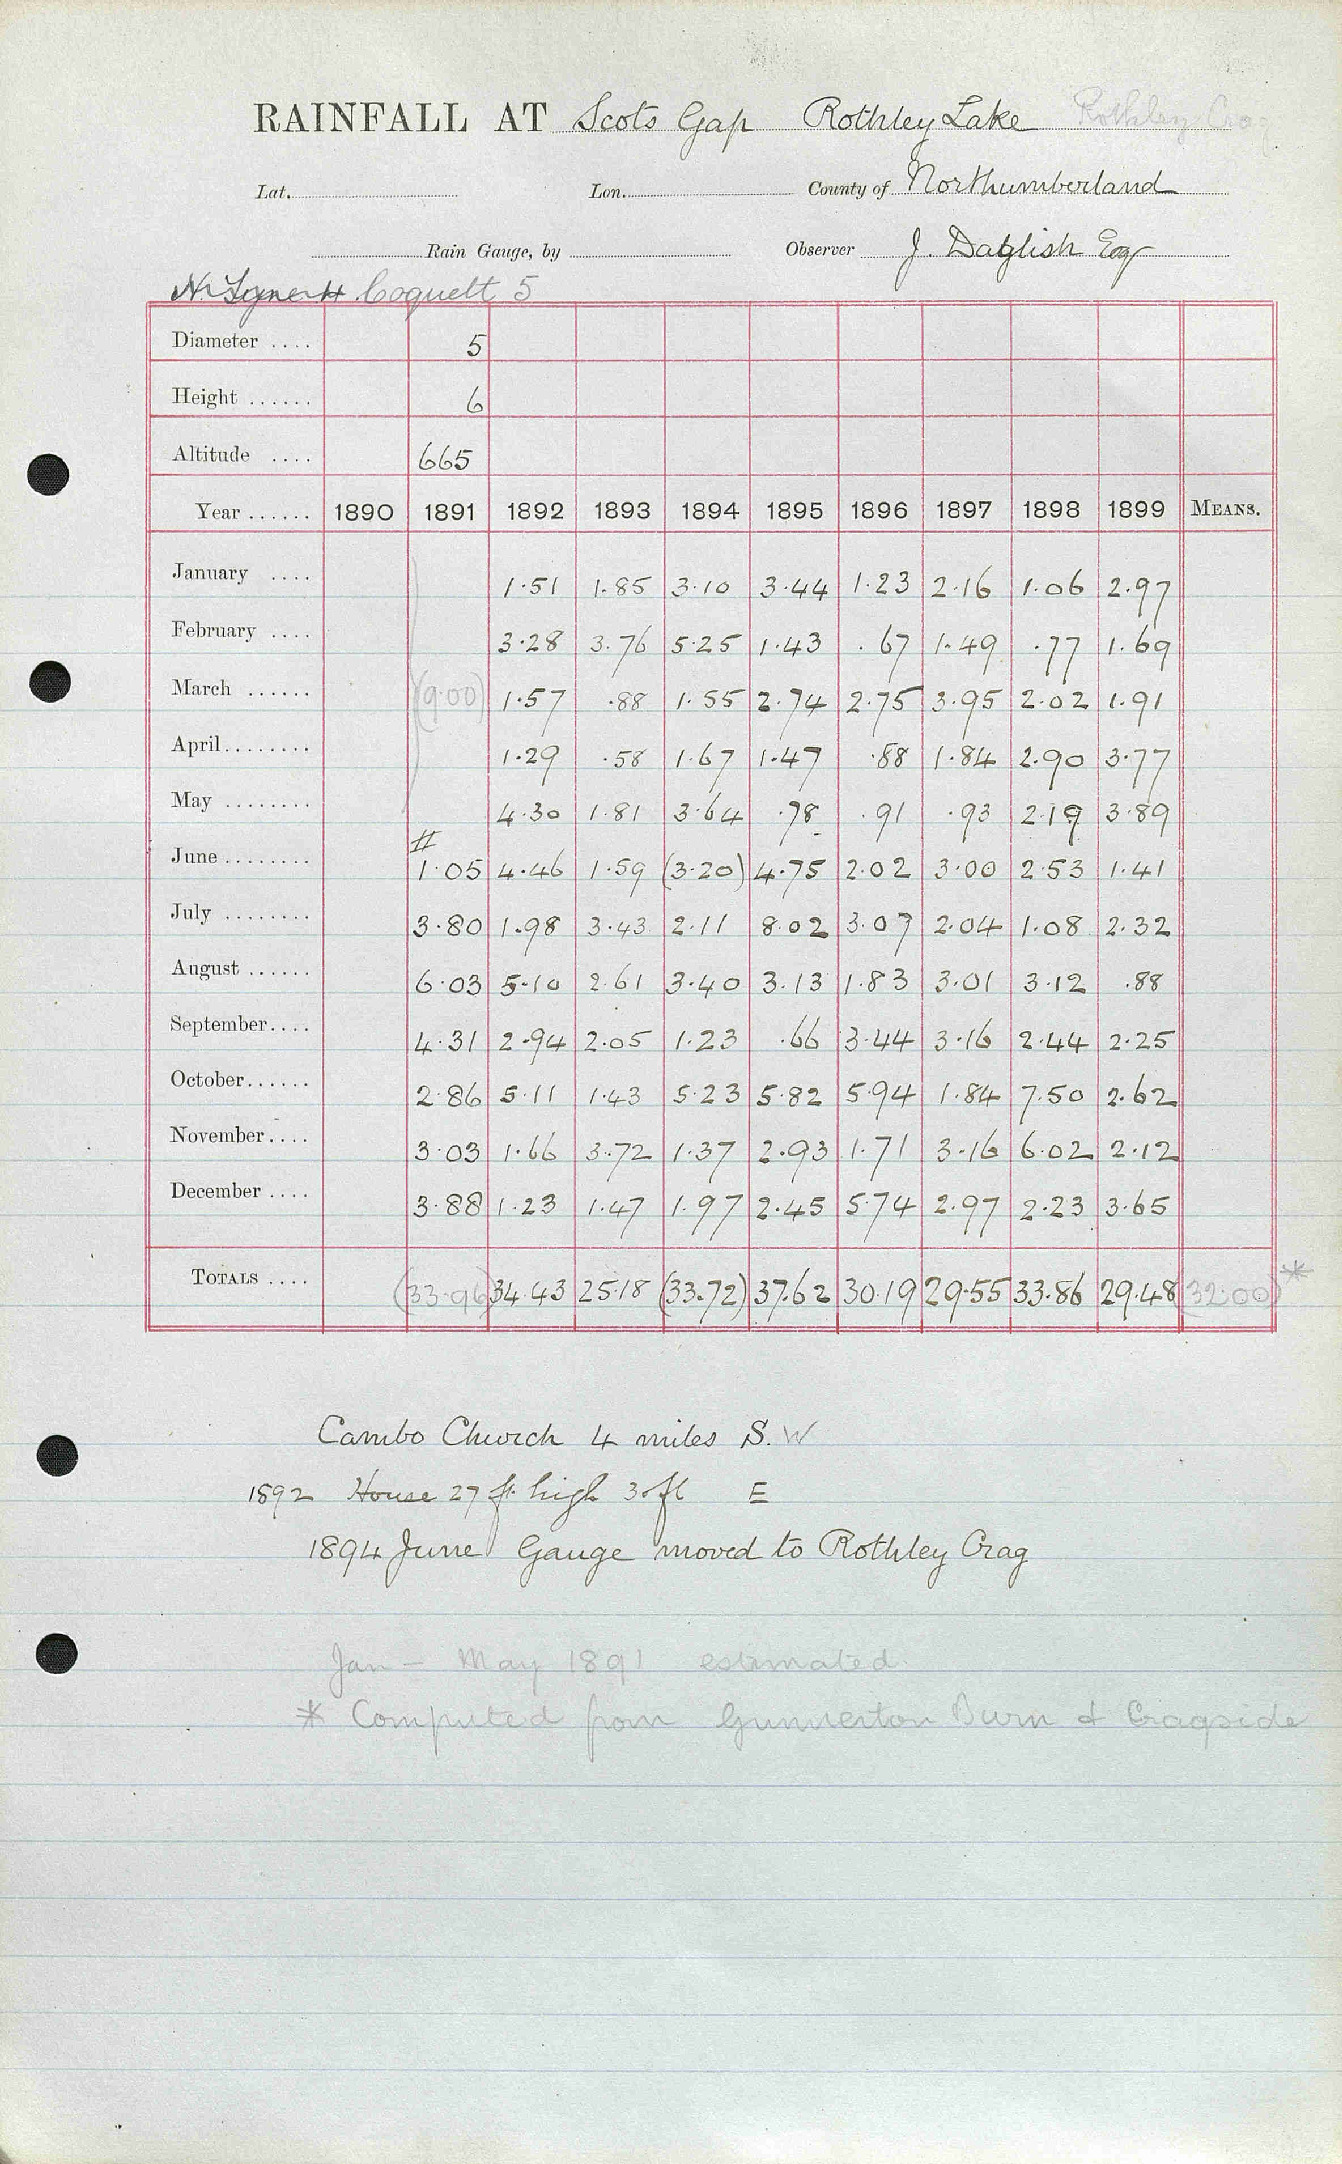 RAINFALL AT Scots Gap Rothley Lake Rothley Crag
Lat. Lon. County of Northumberland
Rain Gauge, by Observer J. Daglish Esq
Coquett 5
Diameter .... 5
Height ...... 6
Altitude .... 665
Year ...... 1890 1891 1892 1893 1894 1895 1896 1897 1898 1899 MEANS.
January .... 1.51 1.85 3.10 3.44 1.23 2.16 1.06 2.97
February .... 3.28 3.76 5.25 1.43 .67 1.49 .77 1.69
March ...... (9.00) 1.57 .88 1.55 2.74 2.75 3.95 2.02 1.91
April ........ 1.29 .58 1.67 1.47 .88 1.84 2.90 3.77
May ........ 4.30 1.81 3.64 .78 .91 .93 2.19 3.89
#
June ........ 1.05 4.46 1.59 (3.20) 4.75 2.02 3.00 2.53 1.41
July ........ 3.80 1.98 3.43 2.11 8.02 3.07 2.04 1.08 2.32
August ...... 6.03 5.10 2.61 3.40 3.13 1.83 3.01 3.12 .88
September .... 4.31 2.94 2.05 1.23 .66 3.44 3.16 2.44 2.25
October ...... 2.86 5.11 1.43 5.23 5.82 5.94 1.84 7.50 2.62
November .... 3.03 1.66 3.72 1.37 2.93 1.71 3.16 6.02 2.12
December .... 3.88 1.23 1.47 1.97 2.45 5.74 2.97 2.23 3.65
TOTALS .... (33.96) 34.43 25.18 (33.72) 37.62 30.19 29.55 33.86 29.48 (32.00)*
Cambo Church 4 miles S. W
1892 House 27 ft. high 30 ft E
1894 June Gauge moved to Rothley Crag
Jan - May 1891 estimated
* Computed from Gunnerton Burn & Cragside